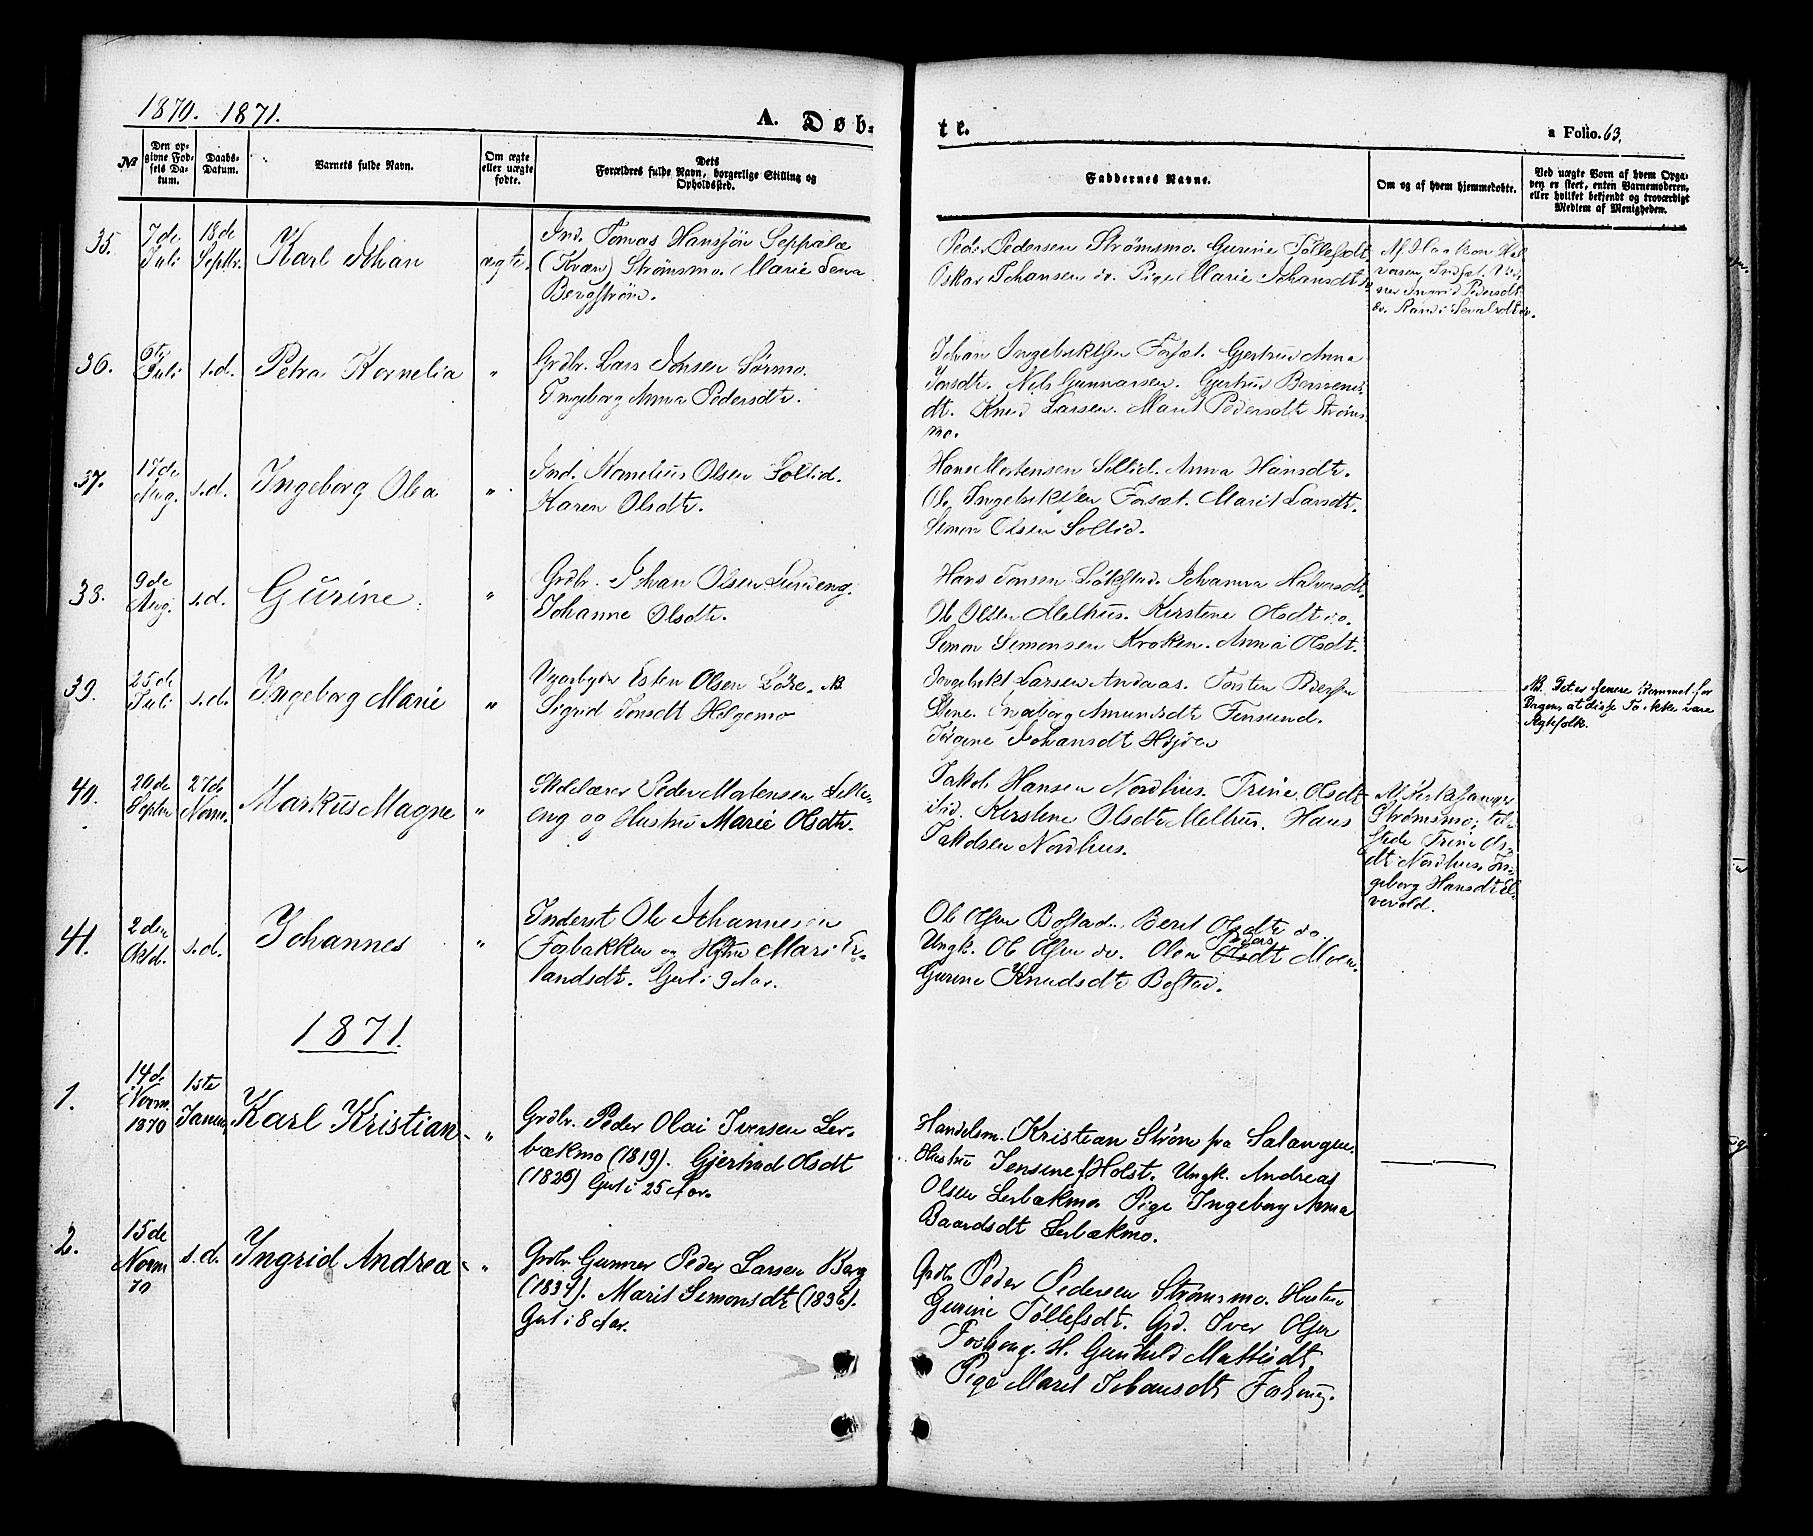 1870. 1871.
A. Døb-
te.
a Folio. 63.
No
Den op-
givne Fød-
sels Da-
tum.
Daabs-
Datum.
Barnets fulde Navn.
Om ægte
eller uægte
fødte.
Dets
Forældres fulde Navn, borgerlige Stilling og
Opholdssted.
Faddernes Navne.
Om og af hvem hjemmedøbte.
Ved uægte Børn af hvem Opga-
ven er skeet, enten Barnemoderen,
eller hvilket bekjendt og troværdigt
Medlem af Menigheden.
35.
7de
Juli
18de
Septbr.
Karl Johan
ægte.
Ind. Tomas Hanssøn Seppälä
(Kvæn) Strømsmo. Marie
Bergstrøm.
Peder Pedersen Strømsmo. Gurine Tollefsdt.
Oskar Johansen do. Pige Marie Johansdt
Af Haakon Hal-
vorsen,
Ingrid Pedersdt
do. Randi
36.
Juli
s.d.
Petra Kornelia
"
Grdbr. Lars Jonsen Sørmo.
Ingeborg Anna Pedersdtr.
Johan Ingebriktsen Forsæt. Gjertrud Anna
Jonsdt. Nils Gunnarsen. Gjertrud
dt. Knud Larsen. Marit Pedersdtr Strøms-
mo.
37.
17de
Aug.
s.d.
Ingeborg Olea
"
Ind. Kornelius Olsen Sollid.
Karen Olsdtr.
Hans Mortensen Sollid. Anna Hansdtr.
Ole Ingebriktsen Forsæt. Marit Larsdt.
Simon Olsen Sollid.
38.
9de
Aug.
s.d.
Gurine.
"
Grdbr. Johan Olsen Lundeng.
Johanne Olsdtr.
Hans Jonsen Løkstad. Johanna Halvorsdt.
Ole Olsen Melhus. Kirstine Olsdt do.
Simon Simonsen Kroken. Anna Olsdt.
39.
25de
Juli
s.d.
Ingeborg Marie
"
Nyerbyder Esten Olsen Løre. NB
Sigrid Jonsdt Helgemo
Ingebrikt Larsen Andaas. Torsten Pedersen
Ingeborg Amundsdtr Fensund.
Jørgine Johansdt
NB. Det er senere kommet for
Dagen, at disse To ikke vare
Ægtefolk.
40.
20de
Septbr
27de
Novbr.
Markus Magne
"
Skolelærer Peder Mortensen Lille-
eng og Hustru Marie Olsdtr.
Jakob Hansen Nordhus. Trine Olsdt
ibid. Kirstene Olsdt Melhus. Hans
Jakobsen Nordhus.
Af Kirkesanger
Strømsmo; til-
stede Trine Ols-
dt Nordhus, In-
geborg Hansdt El-
vevold.
41.
2den
Oktb.
s.d.
Johannes
"
Inderst Ole Johannesen
Fosbakken og Hstru Mari Er-
landsdt. Gift i 9 Aar.
Ole Olsen Bostad. Beret Olsdtr do.
Ungk. Ole Olsen do. Olea Olsdt Moen.
Peders
Gurine Knudsdt Bostad.
1871.
1.
14de
Novm.
1870
1ste
Januar
Karl Kristian
"
Grdbr. Peder Olai Iversen Ler-
bækmo (1819). Gjertrud Olsdt
(1826) Gift i 25 Aar.
Handelsm. Kristian Strøm fra Salangen.
Hustru Jensine f Holst. Ungk. Andreas
Olsen Lerbækmo. Pige Ingeborg Anna
Baardsdt Lerbækmo.
2.
15de
Novm
70
s.d.
Ingrid Andrea
"
Grdbr. Gunner Peder Larsen Berg
(1834). Marit Simonsdt (1836).
Gift i 8 Aar.
Grdbr. Peder Pedersen Strømsmo. Hustru
Gurine Tollefsdt. Grd. Iver Olsen
Fosberg. H. Gunhild Mattisdt
Pige Marit Johansdt